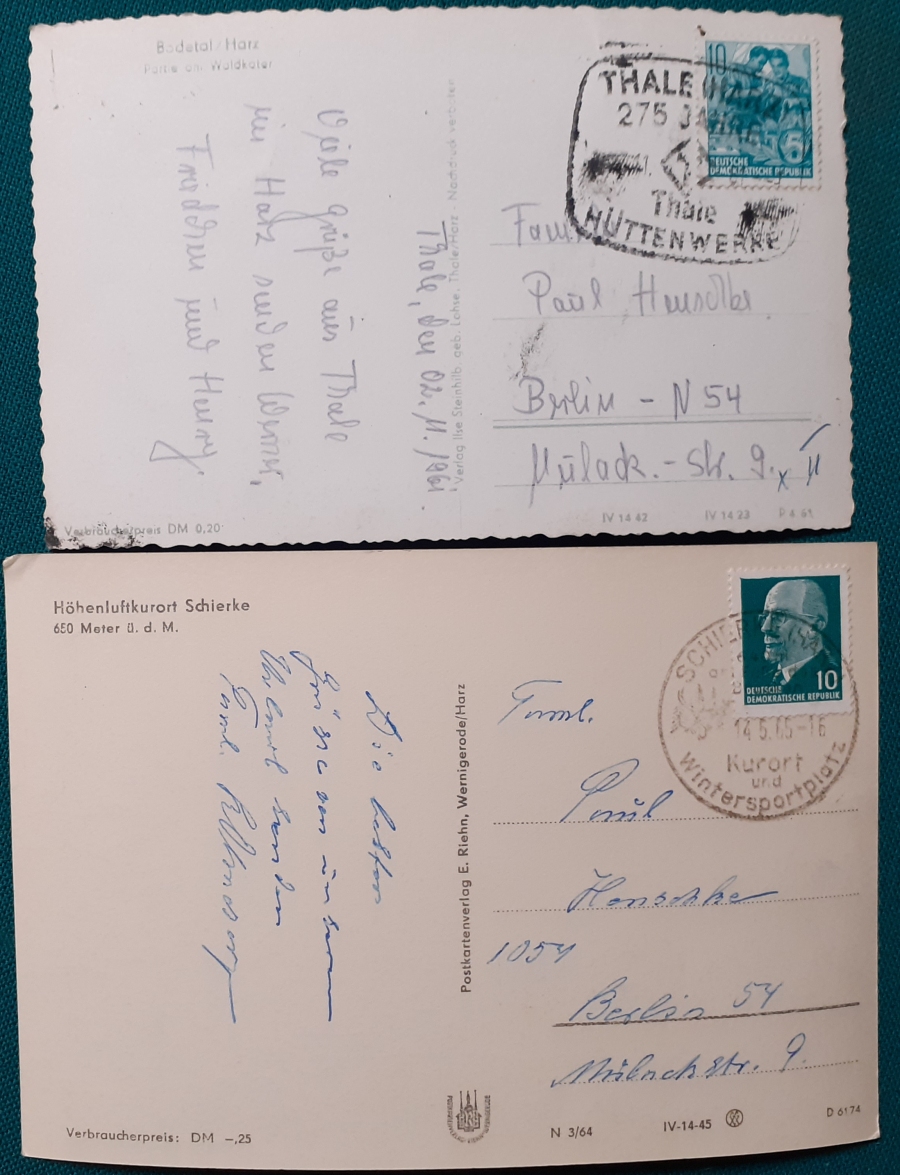 Bodetal/Harz
Partie am Waldkater
Thale, den 02.11.1961
Viele Grüße aus Thale
im Harz senden Werner,
Friedchen und Henry
Verlag Ilse Steinhilb. geb. Lohse, Thale/Harz - Nachdruck verboten
Verbraucherpreis DM 0,20
THALE (HARZ)
275 JAHRE
Thale
HÜTTENWERKE
10
DEUTSCHE
DEMOKRATISCHE REPUBLIK
Fam.
Paul Henschke
Berlin - N 54
Mulack.-Str. 9.
IV 14 42
IV 14 23
P 4 61
Höhenluftkurort Schierke
650 Meter ü. d. M.
Die besten
Grüsse von unserem
Urlaub senden
Fam.
Postkartenverlag E. Riehn, Wernigerode/Harz
Verbraucherpreis: DM –,25
SCHIERKE
14.5.65-16
Kurort
und
Wintersportplatz
10
DEUTSCHE
DEMOKRATISCHE REPUBLIK
Faml.
Paul
Henschke
1054
Berlin 54
Mulackstr. 9.
N 3/64
IV-14-45
D 6174